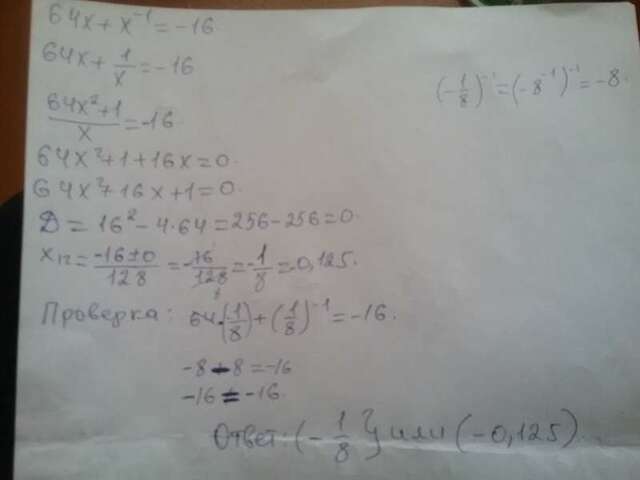 64x + x⁻¹ = -16
64x + 1/x = -16
(-1/8)⁻¹ = (-8⁻¹)⁻¹ = -8.
(64x² + 1)/x = -16
64x² + 1 + 16x = 0.
64x² + 16x + 1 = 0.
D = 16² - 4·64 = 256 - 256 = 0.
x₁₂ = (-16 ± 0)/128 = -16/128 = -1/8 = -0,125.
Проверка: 64·(1/8) + (1/8)⁻¹ = -16.
-8 - 8 = -16
-16 = -16.
Ответ: (-1/8) или (-0,125).